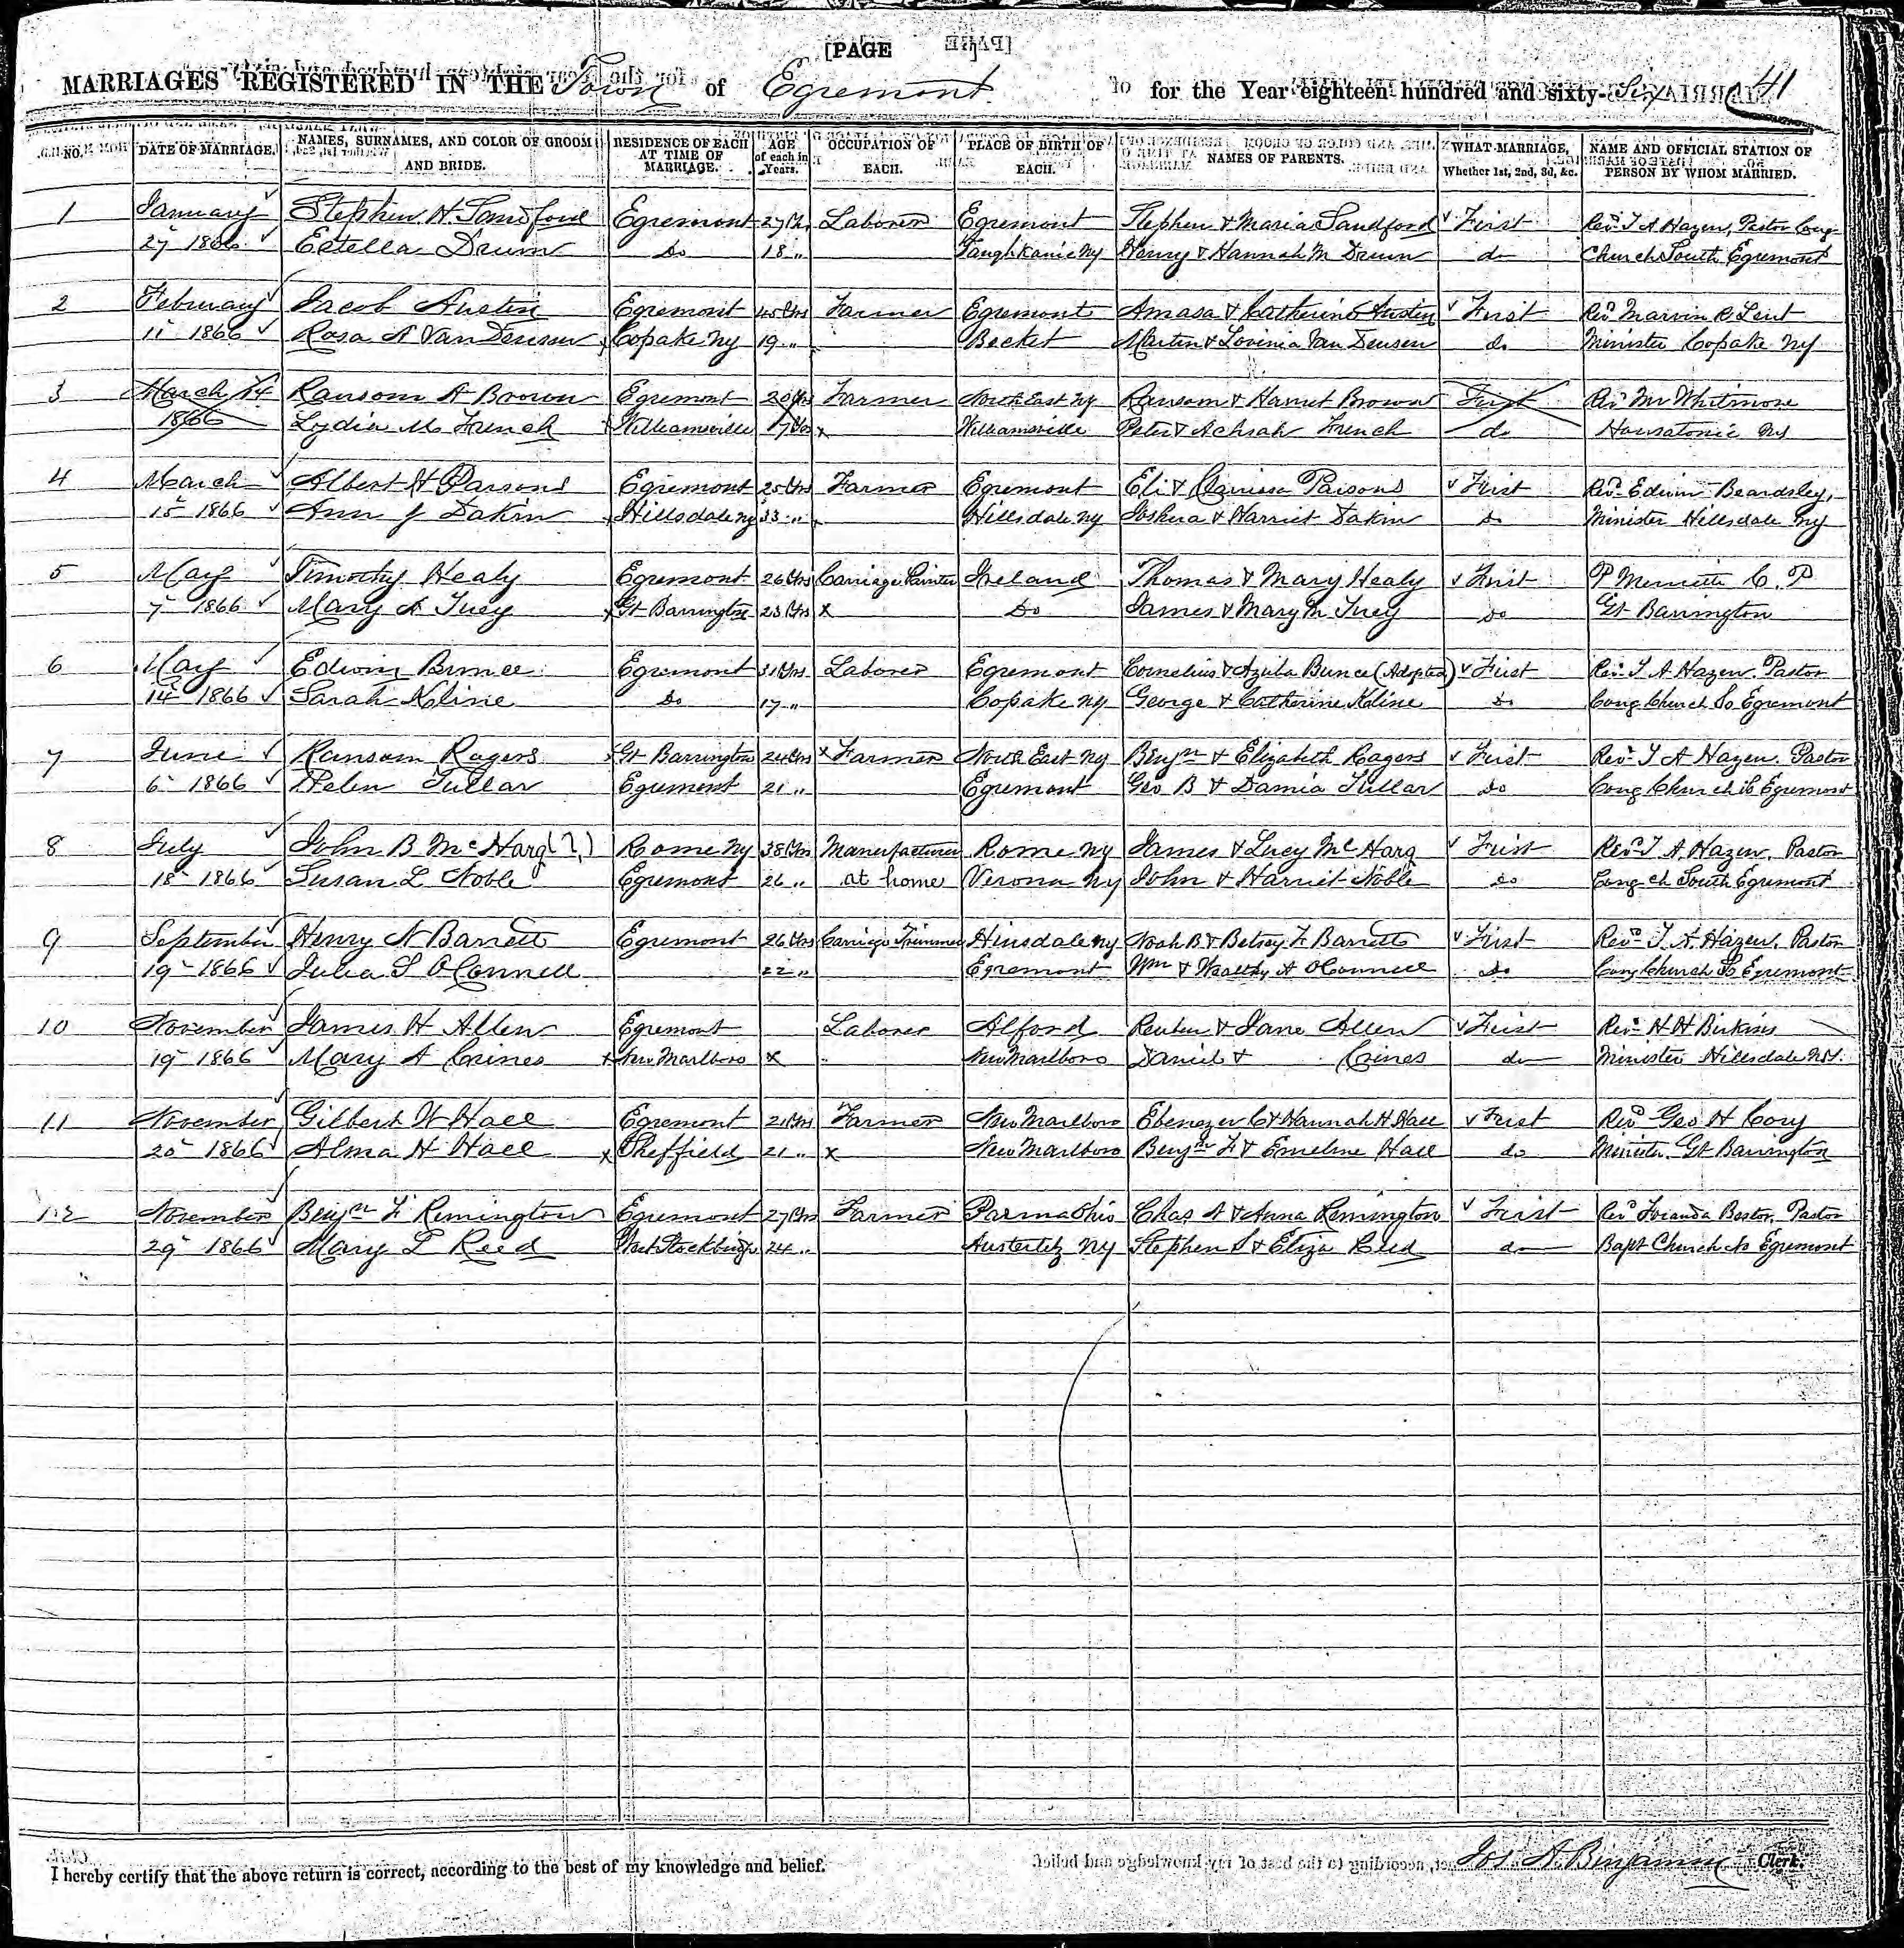 [PAGE ]
MARRIAGES REGISTERED IN THE Town of Egremont for the Year eighteen hundred and sixty-Six 41
NO. DATE OF MARRIAGE. NAMES, SURNAMES, AND COLOR OF GROOM AND BRIDE. RESIDENCE OF EACH AT TIME OF MARRIAGE. AGE of each in Years. OCCUPATION OF EACH. PLACE OF BIRTH OF EACH. NAMES OF PARENTS. WHAT MARRIAGE, Whether 1st, 2nd, 3d, &c. NAME AND OFFICIAL STATION OF PERSON BY WHOM MARRIED.
1 January Stephen H. Sandford Egremont 27 Laborer Egremont Stephen & Maria Sandford First Rev. T A Hazen, Pastor Cong
1866 Estella Drum Do 18 " Taughkanic Ny Henry & Hannah M Drum do Church South Egremont
2 February Jacob Austin Egremont Yrs Farmer Egremont Amasa & Catherine Austin First Rev. Marvin R Lent
11 1866 Rosa A Van Deusen x Copake Ny 19 " Becket Martin & Lovinia Van Deusen do Minister Copake Ny
3 March 14 Ransom A Brown Egremont 20 Yrs Farmer North East Ny Ransom & Harriet Brown First Rev Mr Whitmore
1866 Lydia M French Williamsville 17 Yrs x Williamsville Peter & Achsah French do Housatonic
4 March Albert H Parsons Egremont 25 Yrs Farmer Egremont Eli & Clarissa Parsons First Rev. Edwin Beardsley,
15 1866 Ann J Dakin x Hillsdale Ny 33 " Hillsdale Ny Joshua & Harriet Dakin do Minister Hillsdale Ny
5 May Timothy Healy Egremont 26 Yrs Carriage Painter Ireland Thomas & Mary Healy First P C. P
7 1866 Mary A Tucy x Gt Barrington 23 Yrs x Do James & Mary M Tucy do Gt Barrington
6 May Edwin Bunce Egremont 31 Yrs Laborer Egremont Cornelius & Azuba Bunce (Adopted) First Rev. T A Hazen. Pastor
14 1866 Sarah Kline Do 17 " Copake Ny George & Catherine Kline do Cong Church So Egremont
7 June Ransom Rogers x Gt Barrington 24 Yrs x Farmer North East Ny Benjn & Elizabeth Rogers First Rev. T A Hazen. Pastor
6 1866 Helen Tullar Egremont 21 " Egremont Geo B & Damia Tullar do Cong Church So Egremont
8 July John B McHarg (?) Rome Ny 38 Yrs Manufacturer Rome Ny James & Lucy McHarg First Rev. T A Hazen. Pastor
18 1866 Susan L Noble Egremont 26 " at home Verona Ny John & Harriet Noble do Cong ch South Egremont
9 September Henry N Barrett Egremont 26 Yrs Carriage Trimmer Hinsdale Ny Noah B & Betsey F Barrett First Rev. T A. Hazen. Pastor
19 1866 Julia S OConnell 22 " Egremont Wm & Wealthy A OConnell do Cong Church So Egremont
10 November James H Allen Egremont Laborer Alford Reuben & Jane Allen First Rev. H H Birkins
19 1866 Mary A Crines x New Marlboro x " New Marlboro Daniel & Crines do Minister Hillsdale NY.
11 November Gilbert W Hall Egremont 21 Yrs Farmer New Marlboro Ebenezer C & Hannah H Hall First Rev Geo H Cory
20 1866 Alma H Hall x Sheffield 21 " x New Marlboro Benjn F & Emeline Hall do Minister. Gt Barrington
12 November Benjn F Remington Egremont 27 Yrs Farmer Parma Ohio Chas A & Anna Remington First Rev Foranda Bestor. Pastor
29 1866 Mary L Reed West Stockbridge 24 " Austerlitz Ny Stephen S & Eliza Reed do Bapt Church No Egremont
I hereby certify that the above return is correct, according to the best of my knowledge and belief. Jos A. Benjamin Clerk.